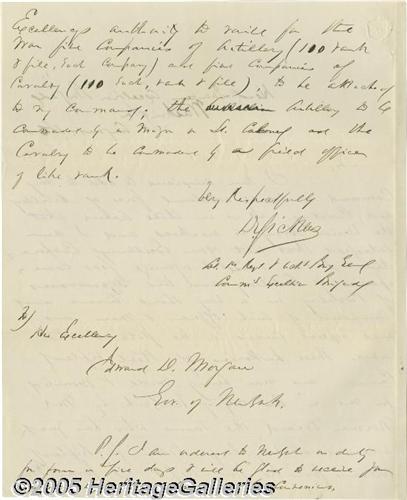 Excellency authority to raise for the
War five Companies of Artillery (100 rank
& file, Each Company) also five Companies of
Cavalry (100 Each, rank & file), to be attached
to my command; the Artillery to be
commanded by a Major or Lt. Colonel and the
Cavalry to be commanded by a field officer
of like rank.
Very Respectfully
D Sickles
Col. 1st Regt & Actg Brig Genl
Comm'g Excelsior Brigade
To
His Excellency
Edward D. Morgan
Gov. of New York.
P.S. I am ordered to New York on duty
for four or five days & will be glad to receive your
©2005 HeritageGalleries